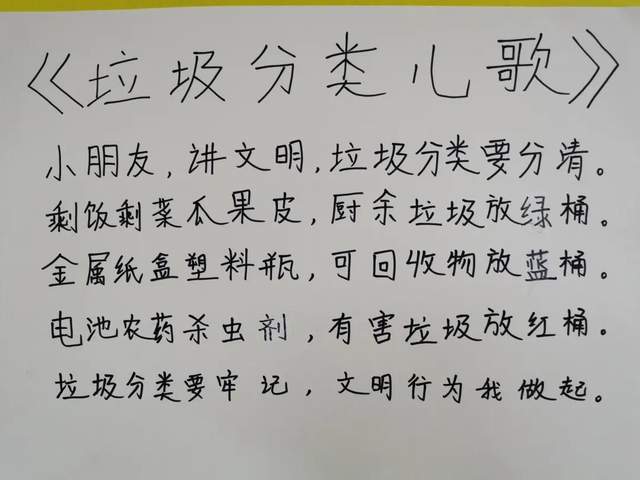 《垃圾分类儿歌》
小朋友,讲文明,垃圾分类要分清。
剩饭剩菜瓜果皮,厨余垃圾放绿桶。
金属纸盒塑料瓶,可回收物放蓝桶。
电池农药杀虫剂,有害垃圾放红桶。
垃圾分类要牢记,文明行为我做起。